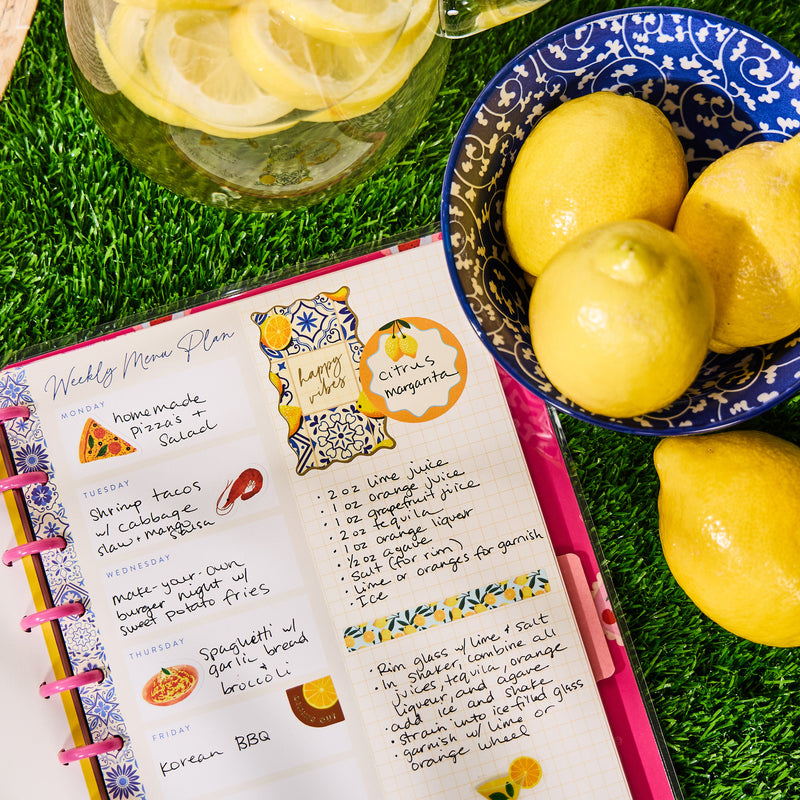 Weekly Menu Plan
MONDAY
homemade
pizzas +
Salad
TUESDAY
Shrimp tacos
w/ cabbage
slaw + mango
salsa
WEDNESDAY
make-your-own
burger night w/
sweet potato fries
THURSDAY
Spaghetti w/
garlic bread
+
broccoli
FRIDAY
Korean BBQ
happy
vibes
citrus
margarita
• 2 oz lime juice
• 1 oz orange juice
• 1 oz grapefruit juice
• 2 oz tequila
• 1 oz orange liquer
• ½ oz agave
• Salt (for rim)
• lime or oranges for garnish
• Ice
• Rim glass w/ lime + salt
• In shaker, combine all
juices, tequila, orange
liqueur, and agave
• add ice and shake
• strain into ice-filled glass
• garnish w/ lime or
orange wheel